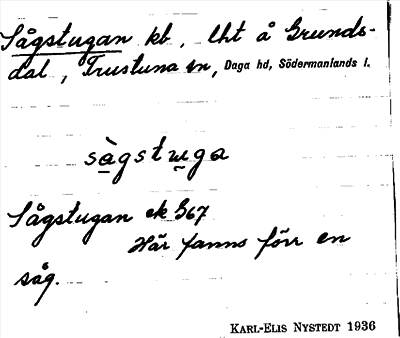 Sågstugan kb, lht å Grunds-
dal, Trustuna sn, Daga hd, Södermanlands l.
sàgstuga
Sågstugan ek 367
Här fanns förr en
såg.
KARL-ELIS NYSTEDT 1936